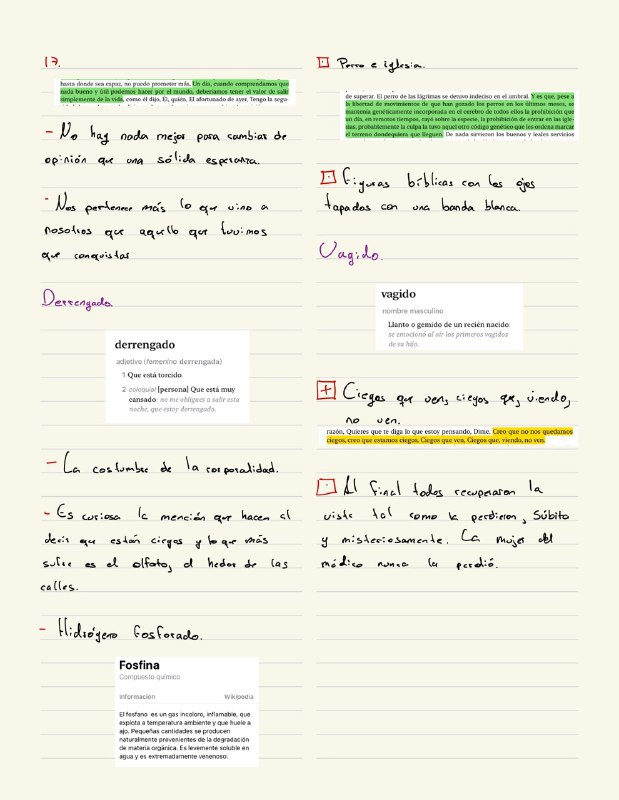 17.
hasta donde sea capaz, no puedo prometer más, Un día, cuando comprendamos que
nada bueno y útil podemos hacer por el mundo, deberíamos tener el valor de salir
simplemente de la vida, como él dijo, Él, quién, El afortunado de ayer, Tengo la segu-
- No hay nada mejor para cambiar de
opinión que una sólida esperanza.
- Nos pertenece más lo que vino a
nosotros que aquello que tuvimos
que conquistar
Derrengado
derrengado
adjetivo (femenino derrengada)
1 Que está torcido.
2 coloquial [persona] Que está muy
cansado: no me obligues a salir esta
noche, que estoy derrengado.
- La costumbre de la corporalidad.
- Es curiosa la mención que hacen al
decir que están ciegos y lo que más
sufre es el olfato, el hedor de las
calles.
- Hidrógeno fosforado.
Fosfina
Compuesto químico
Información Wikipedia
El fosfano es un gas incoloro, inflamable, que
explota a temperatura ambiente y que huele a
ajo. Pequeñas cantidades se producen
naturalmente provenientes de la degradación
de materia orgánica. Es levemente soluble en
agua y es extremadamente venenoso.
Perro e iglesia.
de superar. El perro de las lágrimas se detuvo indeciso en el umbral. Y es que, pese a
la libertad de movimientos de que han gozado los perros en los últimos meses, se
mantenía genéticamente incorporada en el cerebro de todos ellos la prohibición que
un día, en remotos tiempos, cayó sobre la especie, la prohibición de entrar en las igle-
sias, probablemente la culpa la tuvo aquel otro código genético que les ordena marcar
el terreno dondequiera que lleguen. De nada sirvieron los buenos y leales servicios
Figuras bíblicas con los ojos
tapados con una banda blanca.
Vagido.
vagido
nombre masculino
Llanto o gemido de un recién nacido:
se emocionó al oír los primeros vagidos
de su hijo.
+ Ciegos que ven, ciegos que, viendo,
no ven.
razón, Quieres que te diga lo que estoy pensando, Dime, Creo que no nos quedamos
ciegos, creo que estamos ciegos, Ciegos que ven, Ciegos que, viendo, no ven.
Al final todos recuperaron la
vista tal como la perdieron, súbito
y misteriosamente. La mujer del
médico nunca la perdió.